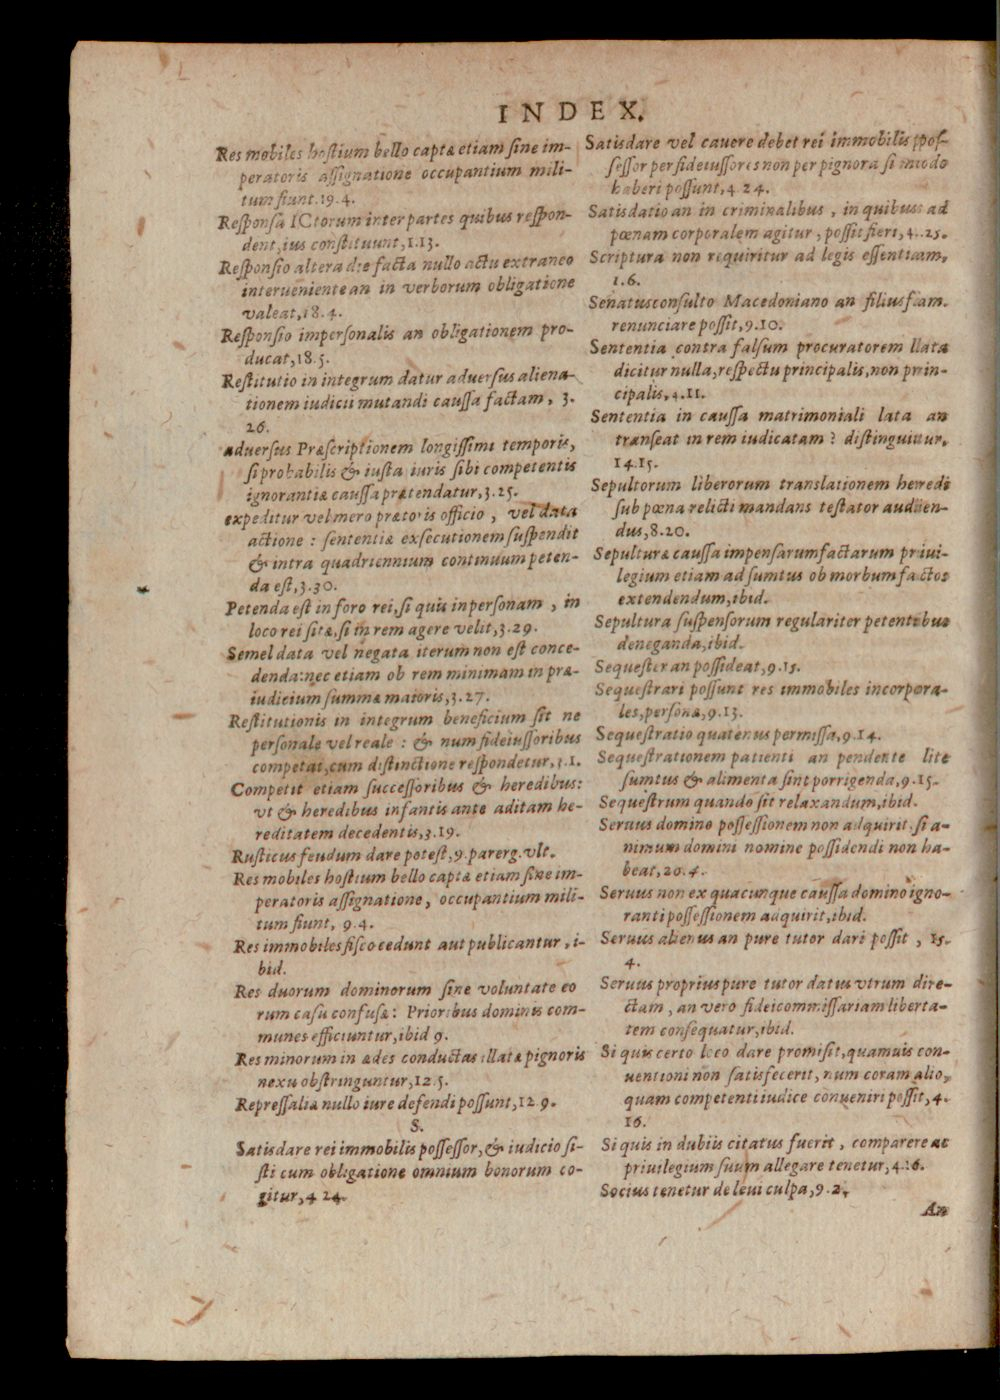 INDEX.
Res mobiles hostium bello captæ etiam sine im-
peratoris assignatione occupantium mili-
tum fiunt.19.4.
Responsa ICtorum inter partes quibus respon-
dent, ius constituunt,1.13.
Responsio altera die facta nullo actu extraneo
interueniente an in verborum obligatione
valeat,18.4.
Responsio impersonalis an obligationem pro-
ducat,18.5.
Restitutio in integrum datur aduersus aliena-
tionem iudicii mutandi caussa factam, 3.
26.
aduersus Præscriptionem longissimi temporis,
si probabilis & iusta iuris sibi competentis
ignorantiæ caussa prætendatur,3.25.
expeditur vel mero prætoris officio, vel data
actione: sententiæ exsecutionem suspendit
& intra quadriennium continuum peten-
da est,3.30.
Petenda est in foro rei, si quis in personam, in
loco rei sitæ, si in rem agere velit,3.29.
Semel data vel negata iterum non est conce-
denda: nec etiam ob rem minimam in præ-
iudicium summæ maioris,3.27.
Restitutionis in integrum beneficium sit ne
personale vel reale: & num fideiussoribus
competat, cum distinctione respondetur,3.1.
Competit etiam successoribus & heredibus:
vt & heredibus infantis ante aditam he-
reditatem decedentis,3.19.
Rusticus feudum dare potest,9.parerg.vlt.
Res mobiles hostium bello captæ etiam sine im-
peratoris assignatione, occupantium mili-
tum fiunt, 9.4.
Res immobiles fisco cedunt aut publicantur, i-
bid.
Res duorum dominorum sine voluntate eo
rum casu confusæ: Prioribus dominis com-
munes efficiuntur, ibid 9.
Res minorum in ædes conductas illatæ pignoris
nexu obstringuntur,12.5.
Repressaliæ nullo iure defendi possunt,12.9.
S.
Satisdare rei immobilis possessor, & iudicio si-
sti cum obligatione omnium bonorum co-
gitur,4 24.
Satisdare vel cauere debet rei immobilis pos-
sessor per fideiussores non per pignora si modo
haberi possunt,4.24.
Satisdatio an in criminalibus, in quibus ad
pœnam corporalem agitur, possit fieri,4.25.
Scriptura non requiritur ad legis essentiam,
1.6.
Senatusconsulto Macedoniano an filiusfam.
renunciare possit,9.10.
Sententia contra falsum procuratorem llata
dicitur nulla, respectu principalis, non prin-
cipalis,4.11.
Sententia in caussa matrimoniali lata an
transeat in rem iudicatam? distinguitur,
14.15.
Sepultorum liberorum translationem heredi
sub pœna relicti mandans testator audien-
dus,8.20.
Sepulturæ caussa impensarum factarum priui-
legium etiam ad sumtus ob morbum factos
extendendum, ibid.
Sepultura suspensorum regulariter petentibus
deneganda, ibid.
Sequester an possideat,9.15.
Sequestrari possunt res immobiles incorpora-
les, personæ,9.13.
Sequestratio quatenus permissa,9.14.
Sequestrationem patienti an pendente lite
sumtus & alimenta sint porrigenda,9.15.
Sequestrum quando sit relaxandum, ibid.
Seruus domino possessionem non adquirit, si a-
nimum domini nomine possidendi non ha-
beat,20.4.
Seruus non ex quacunque caussa domino igno-
ranti possessionem adquirit, ibid.
Seruus alienus an pure tutor dari possit, 15.
4.
Seruus proprius pure tutor datus vtrum dire-
ctam, an vero fideicommissariam liberta-
tem consequatur, ibid.
Si quis certo loco dare promisit, quamuis con-
uentioni non satisfecerit, num coram alio,
quam competenti iudice conueniri possit,4.
16.
Si quis in dubiis citatus fuerit, comparere ac
priuilegium suum allegare tenetur,4.16.
Socius tenetur de leui culpa,9.2.
An